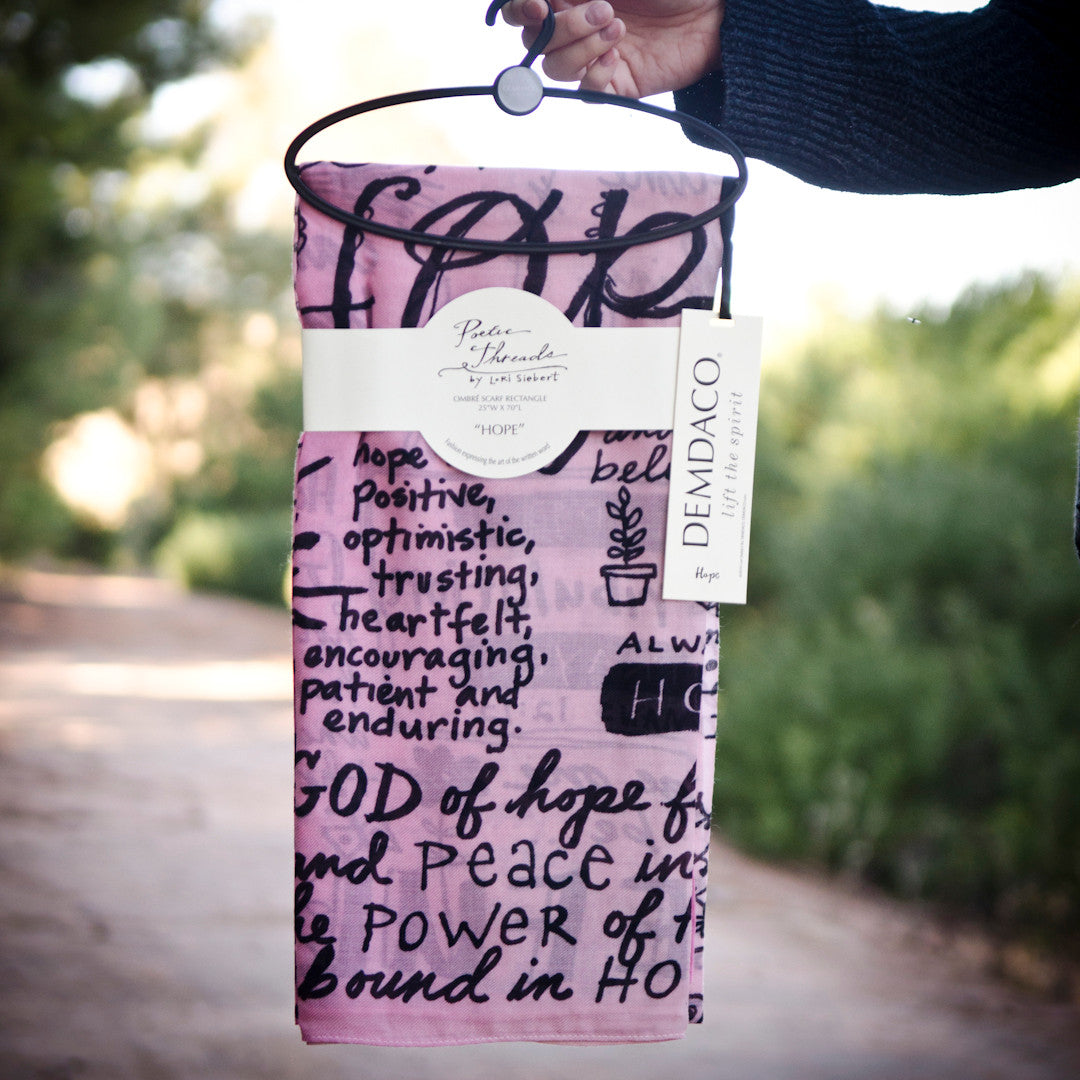 Poetic
Threads
by Lori Siebert
OMBRÉ SCARF RECTANGLE
25"W X 70"L
"HOPE"
Fashion expressing the art of the written word
DEMDACO®
lift the spirit
Hope
hope
positive,
optimistic,
trusting,
heartfelt,
encouraging,
patient and
enduring.
and
bel
ALW
HO
GOD of hope f
and PEACE in
he POWER of t
bound in HO